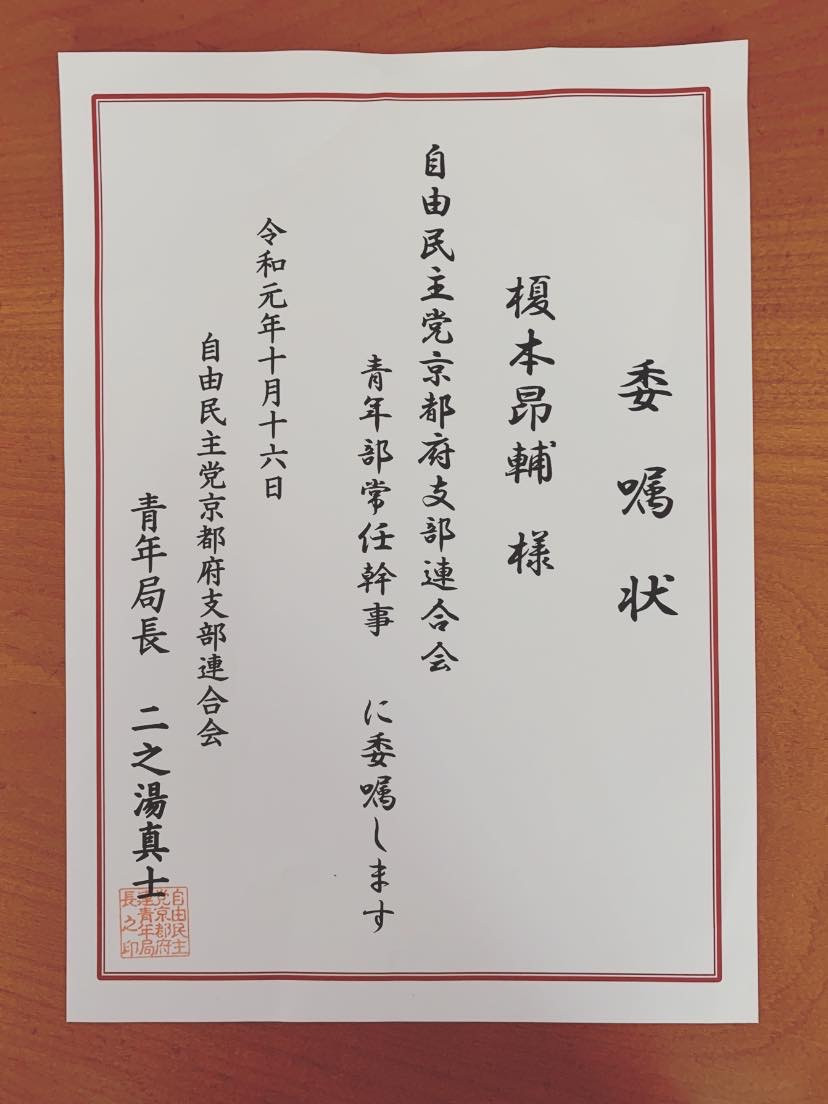 委嘱状
榎本昂輔 様
自由民主党京都府支部連合会
青年部常任幹事 に委嘱します
令和元年十月十六日
自由民主党京都府支部連合会
青年局長 二之湯真士
自由民主
党京都府
連青年局
長之印